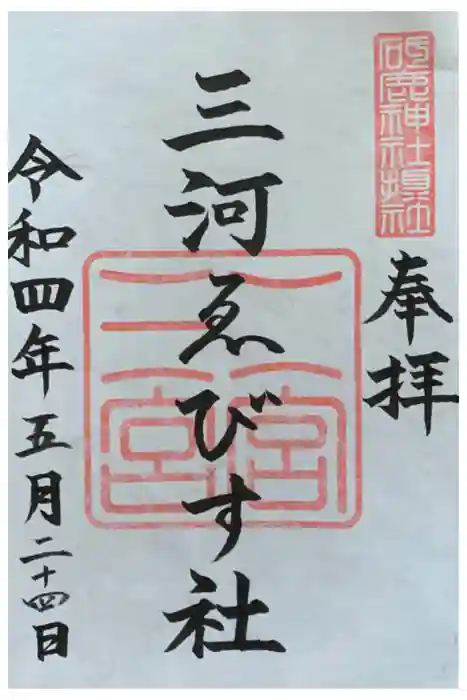 砥鹿神社摂社
奉拝
二宮
三宮
三河ゑびす社
令和四年五月二十四日